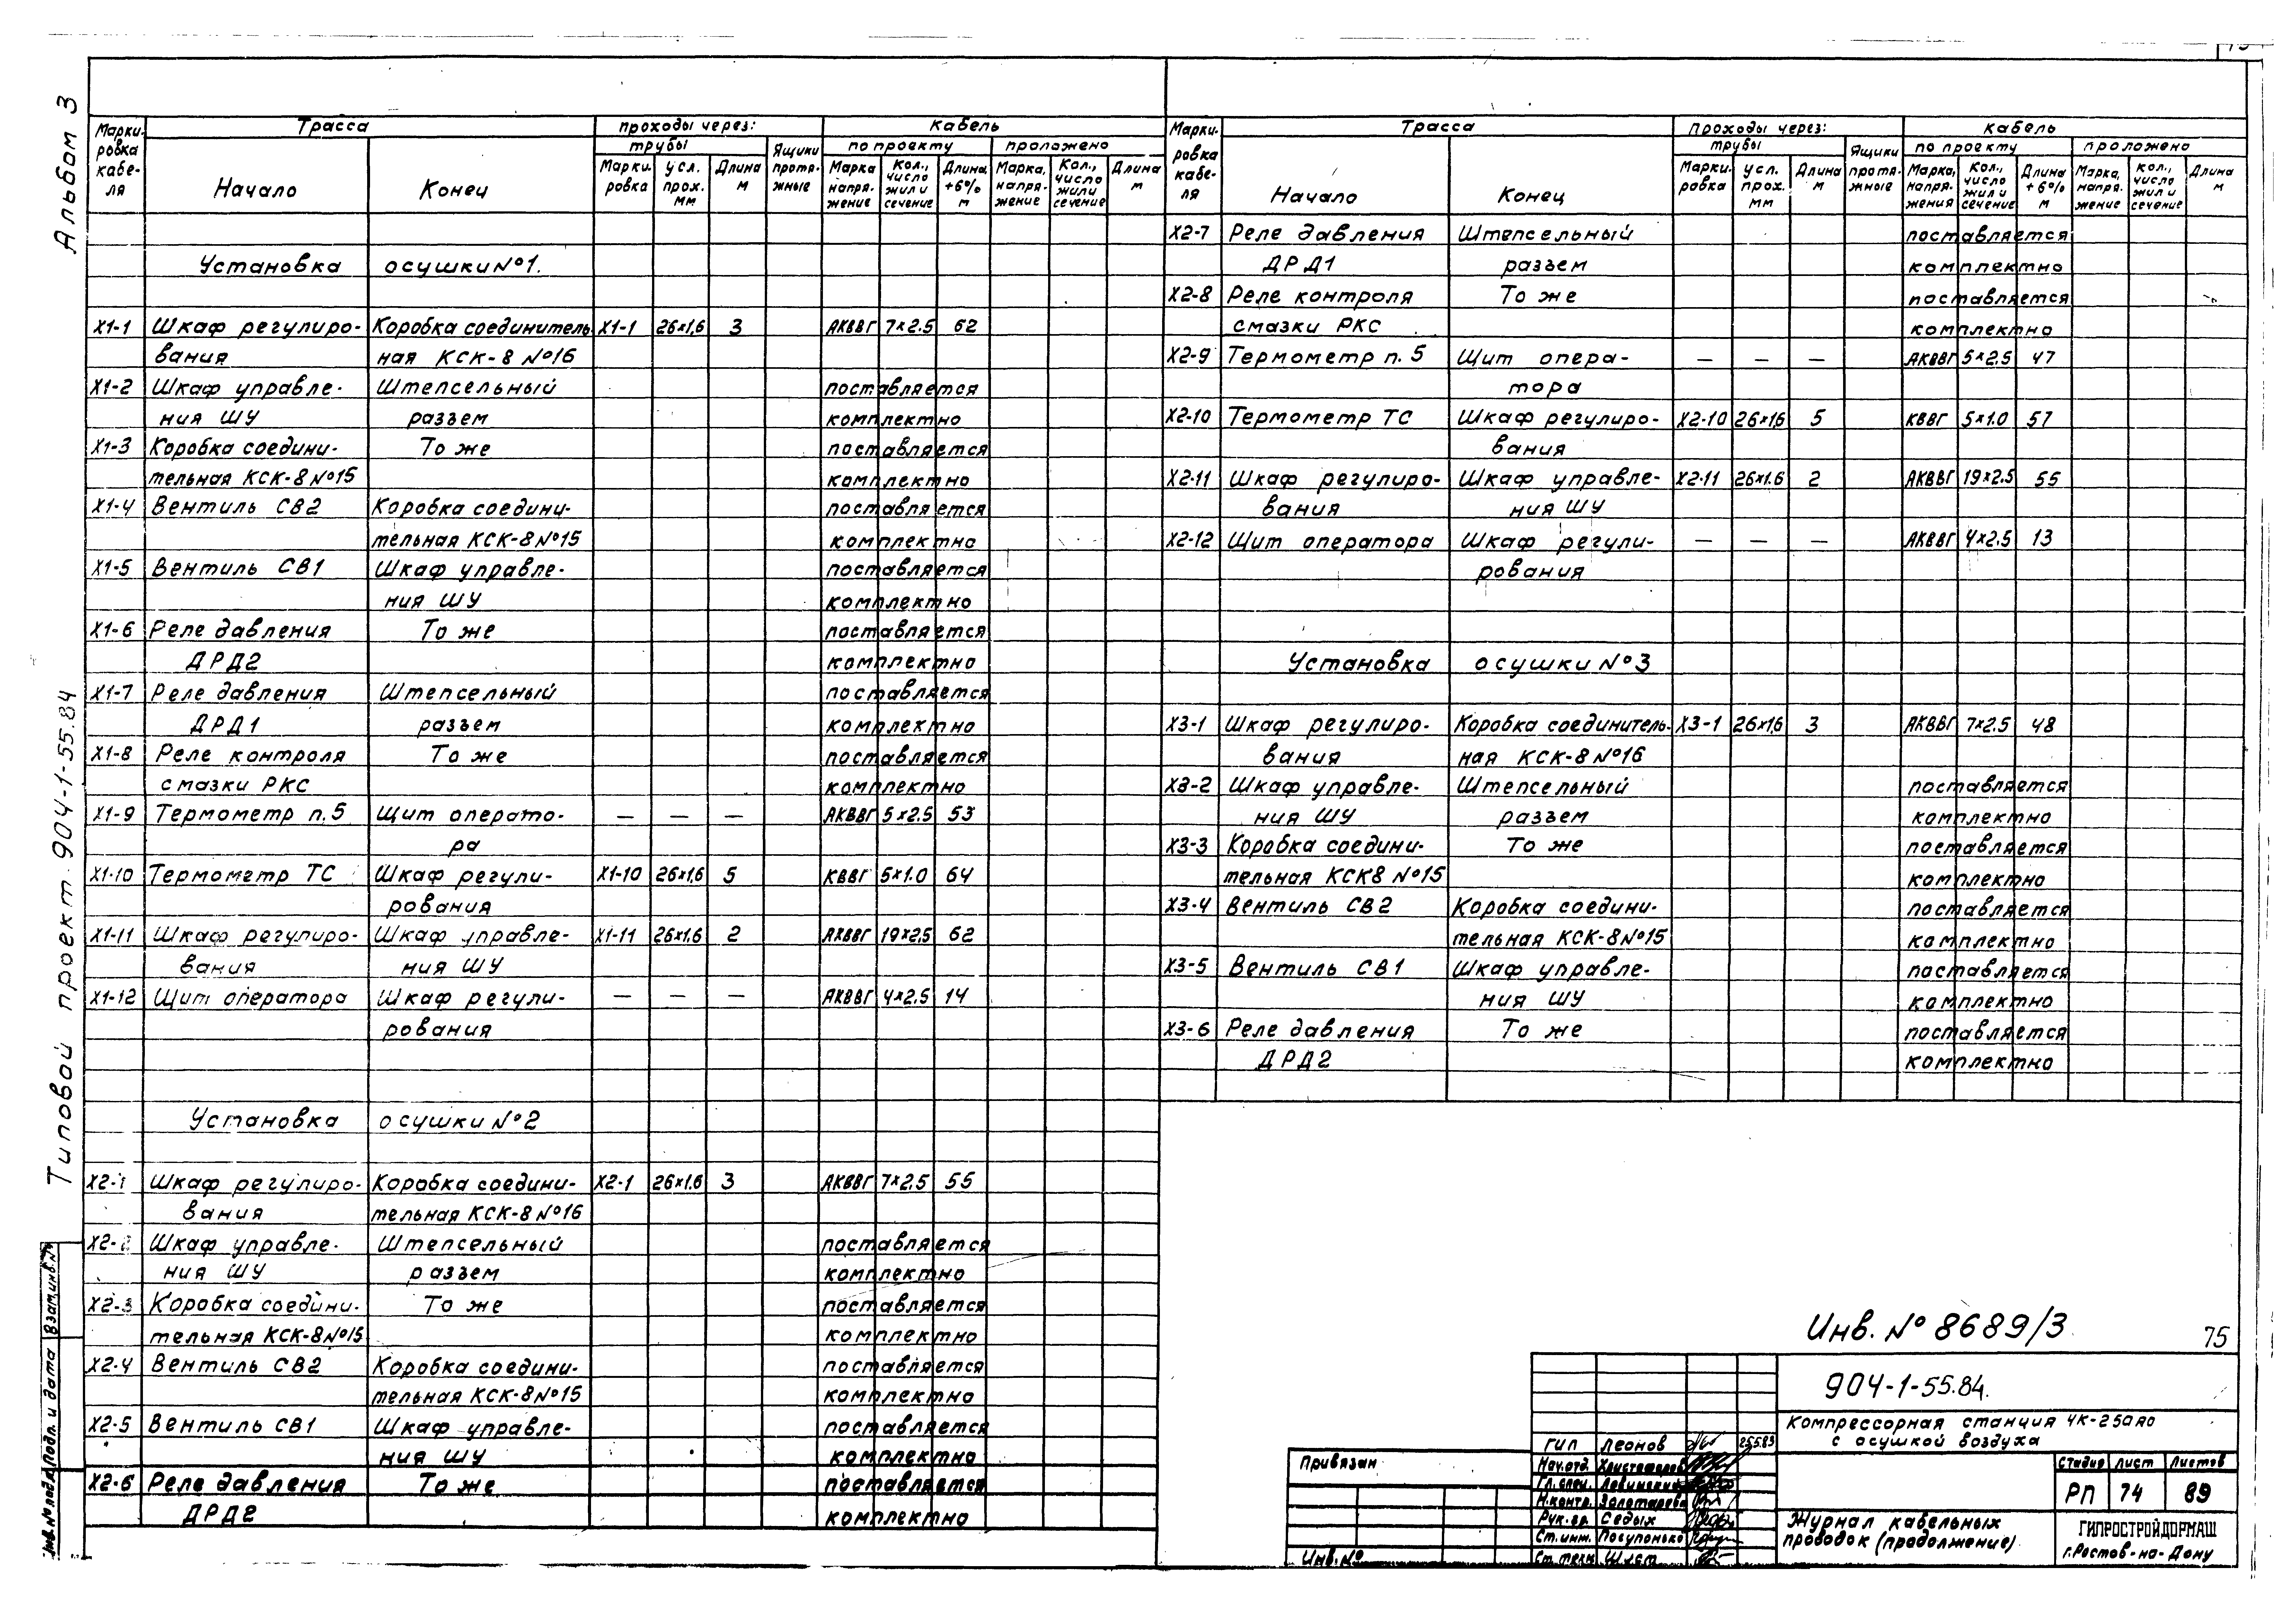 Альбом 3
Типовой проект 904-1-55.84
Взам.инв.№
Подп. и дата
Инв.№ подл.
Марки-ровка кабе-ля | Трасса | проходы через: | Кабель
трубы | Ящики протя-жные | по проекту | проложено
Начало | Конец | Марки-ровка | усл. прох. мм | Длина м | Марка напря-жение | Кол., число жил и сечение | Длина +6% м | Марка, напря-жение | Кол., число жил и сечение | Длина м
Установка осушки №1.
Х1-1 Шкаф регулиро- Коробка соединитель- Х1-1 26×1,6 3 АКВВГ 7×2.5 62
вания ная КСК-8 №16
Х1-2 Шкаф управле- Штепсельный поставляется
ния ШУ разъем комплектно
Х1-3 Коробка соедини- То же поставляется
тельная КСК-8 №15 комплектно
Х1-4 Вентиль СВ2 Коробка соедини- поставляется
тельная КСК-8 №15 комплектно
Х1-5 Вентиль СВ1 Шкаф управле- поставляется
ния ШУ комплектно
Х1-6 Реле давления То же поставляется
ДРД2 комплектно
Х1-7 Реле давления Штепсельный поставляется
ДРД1 разъем комплектно
Х1-8 Реле контроля То же поставляется
смазки РКС комплектно
Х1-9 Термометр п.5 Щит операто- — — — АКВВГ 5×2.5 53
ра
Х1-10 Термометр ТС Шкаф регули- Х1-10 26×1,6 5 КВВГ 5×1.0 64
рования
Х1-11 Шкаф регулиро- Шкаф управле- Х1-11 26×1.6 2 АКВВГ 19×2,5 62
вания ния ШУ
Х1-12 Щит оператора Шкаф регули- — — — АКВВГ 4×2.5 14
рования
Установка осушки №2
Х2-1 Шкаф регулиро- Коробка соедини- Х2-1 26×1.6 3 АКВВГ 7×2,5 55
вания тельная КСК-8 №16
Х2-2 Шкаф управле- Штепсельный поставляется
ния ШУ разъем комплектно
Х2-3 Коробка соедини- То же поставляется
тельная КСК-8 №15 комплектно
Х2-4 Вентиль СВ2 Коробка соедини- поставляется
тельная КСК-8 №15 комплектно
Х2-5 Вентиль СВ1 Шкаф управле- поставляется
ния ШУ комплектно
Х2-6 Реле давления То же поставляется
ДРД2 комплектно
Марки-ровка кабе-ля | Трасса | Проходы через: | кабель
трубы | Ящики протя-жные | по проекту | проложено
Начало | Конец | Марки-ровка | усл. прох. мм | Длина м | Марка, напря-жения | Кол., число жил и сечение | Длина +6% м | Марка, напря-жение | кол., число жил и сечение | Длина м
Х2-7 Реле давления Штепсельный поставляется
ДРД1 разъем комплектно
Х2-8 Реле контроля То же поставляется
смазки РКС комплектно
Х2-9 Термометр п. 5 Щит опера- — — — АКВВГ 5×2.5 47
тора
Х2-10 Термометр ТС Шкаф регулиро- Х2-10 26×1,6 5 КВВГ 5×1.0 57
вания
Х2-11 Шкаф регулиро- Шкаф управле- Х2-11 26×1.6 2 АКВВГ 19×2.5 55
вания ния ШУ
Х2-12 Щит оператора Шкаф регули- — — — АКВВГ 4×2.5 13
рования
Установка осушки №3
Х3-1 Шкаф регулиро- Коробка соединитель- Х3-1 26×1,6 3 АКВВГ 7×2.5 48
вания ная КСК-8 №16
Х3-2 Шкаф управле- Штепсельный поставляется
ния ШУ разъем комплектно
Х3-3 Коробка соедини- То же поставляется
тельная КСК8 №15 комплектно
Х3-4 Вентиль СВ2 Коробка соедини- поставляется
тельная КСК-8 №15 комплектно
Х3-5 Вентиль СВ1 Шкаф управле- поставляется
ния ШУ комплектно
Х3-6 Реле давления То же поставляется
ДРД2 комплектно
Инв. № 8689/3 75
904-1-55.84.
Компрессорная станция 4К-250АО
с осушкой воздуха
Привязан
Инв.№
ГИП Леонов 25.5.83
Нач.отд.
Гл.спец.
Н.контр. Золотарева
Рук.гр. Седых
Ст.инж. Посупонько
Ст.техн.
Стадия Лист Листов
РП 74 89
Журнал кабельных
проводок (продолжение)
ГИПРОСТРОЙДОРМАШ
г.Ростов-на-Дону